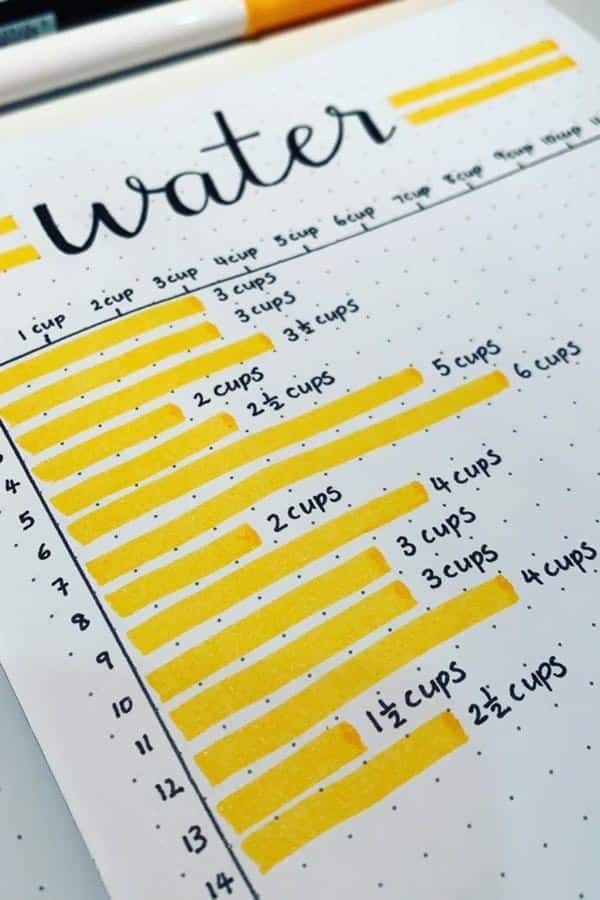 water
1 cup 2cup 3cup 4cup 5cup 6cup 7cup 8cup 9cup 10cup
3 cups
3 cups
3½ cups
4 2 cups
5 2½ cups
6 5 cups
7 6 cups
8 2 cups
9 4 cups
10 3 cups
11 3 cups
12 4 cups
13 1½ cups
14 2½ cups